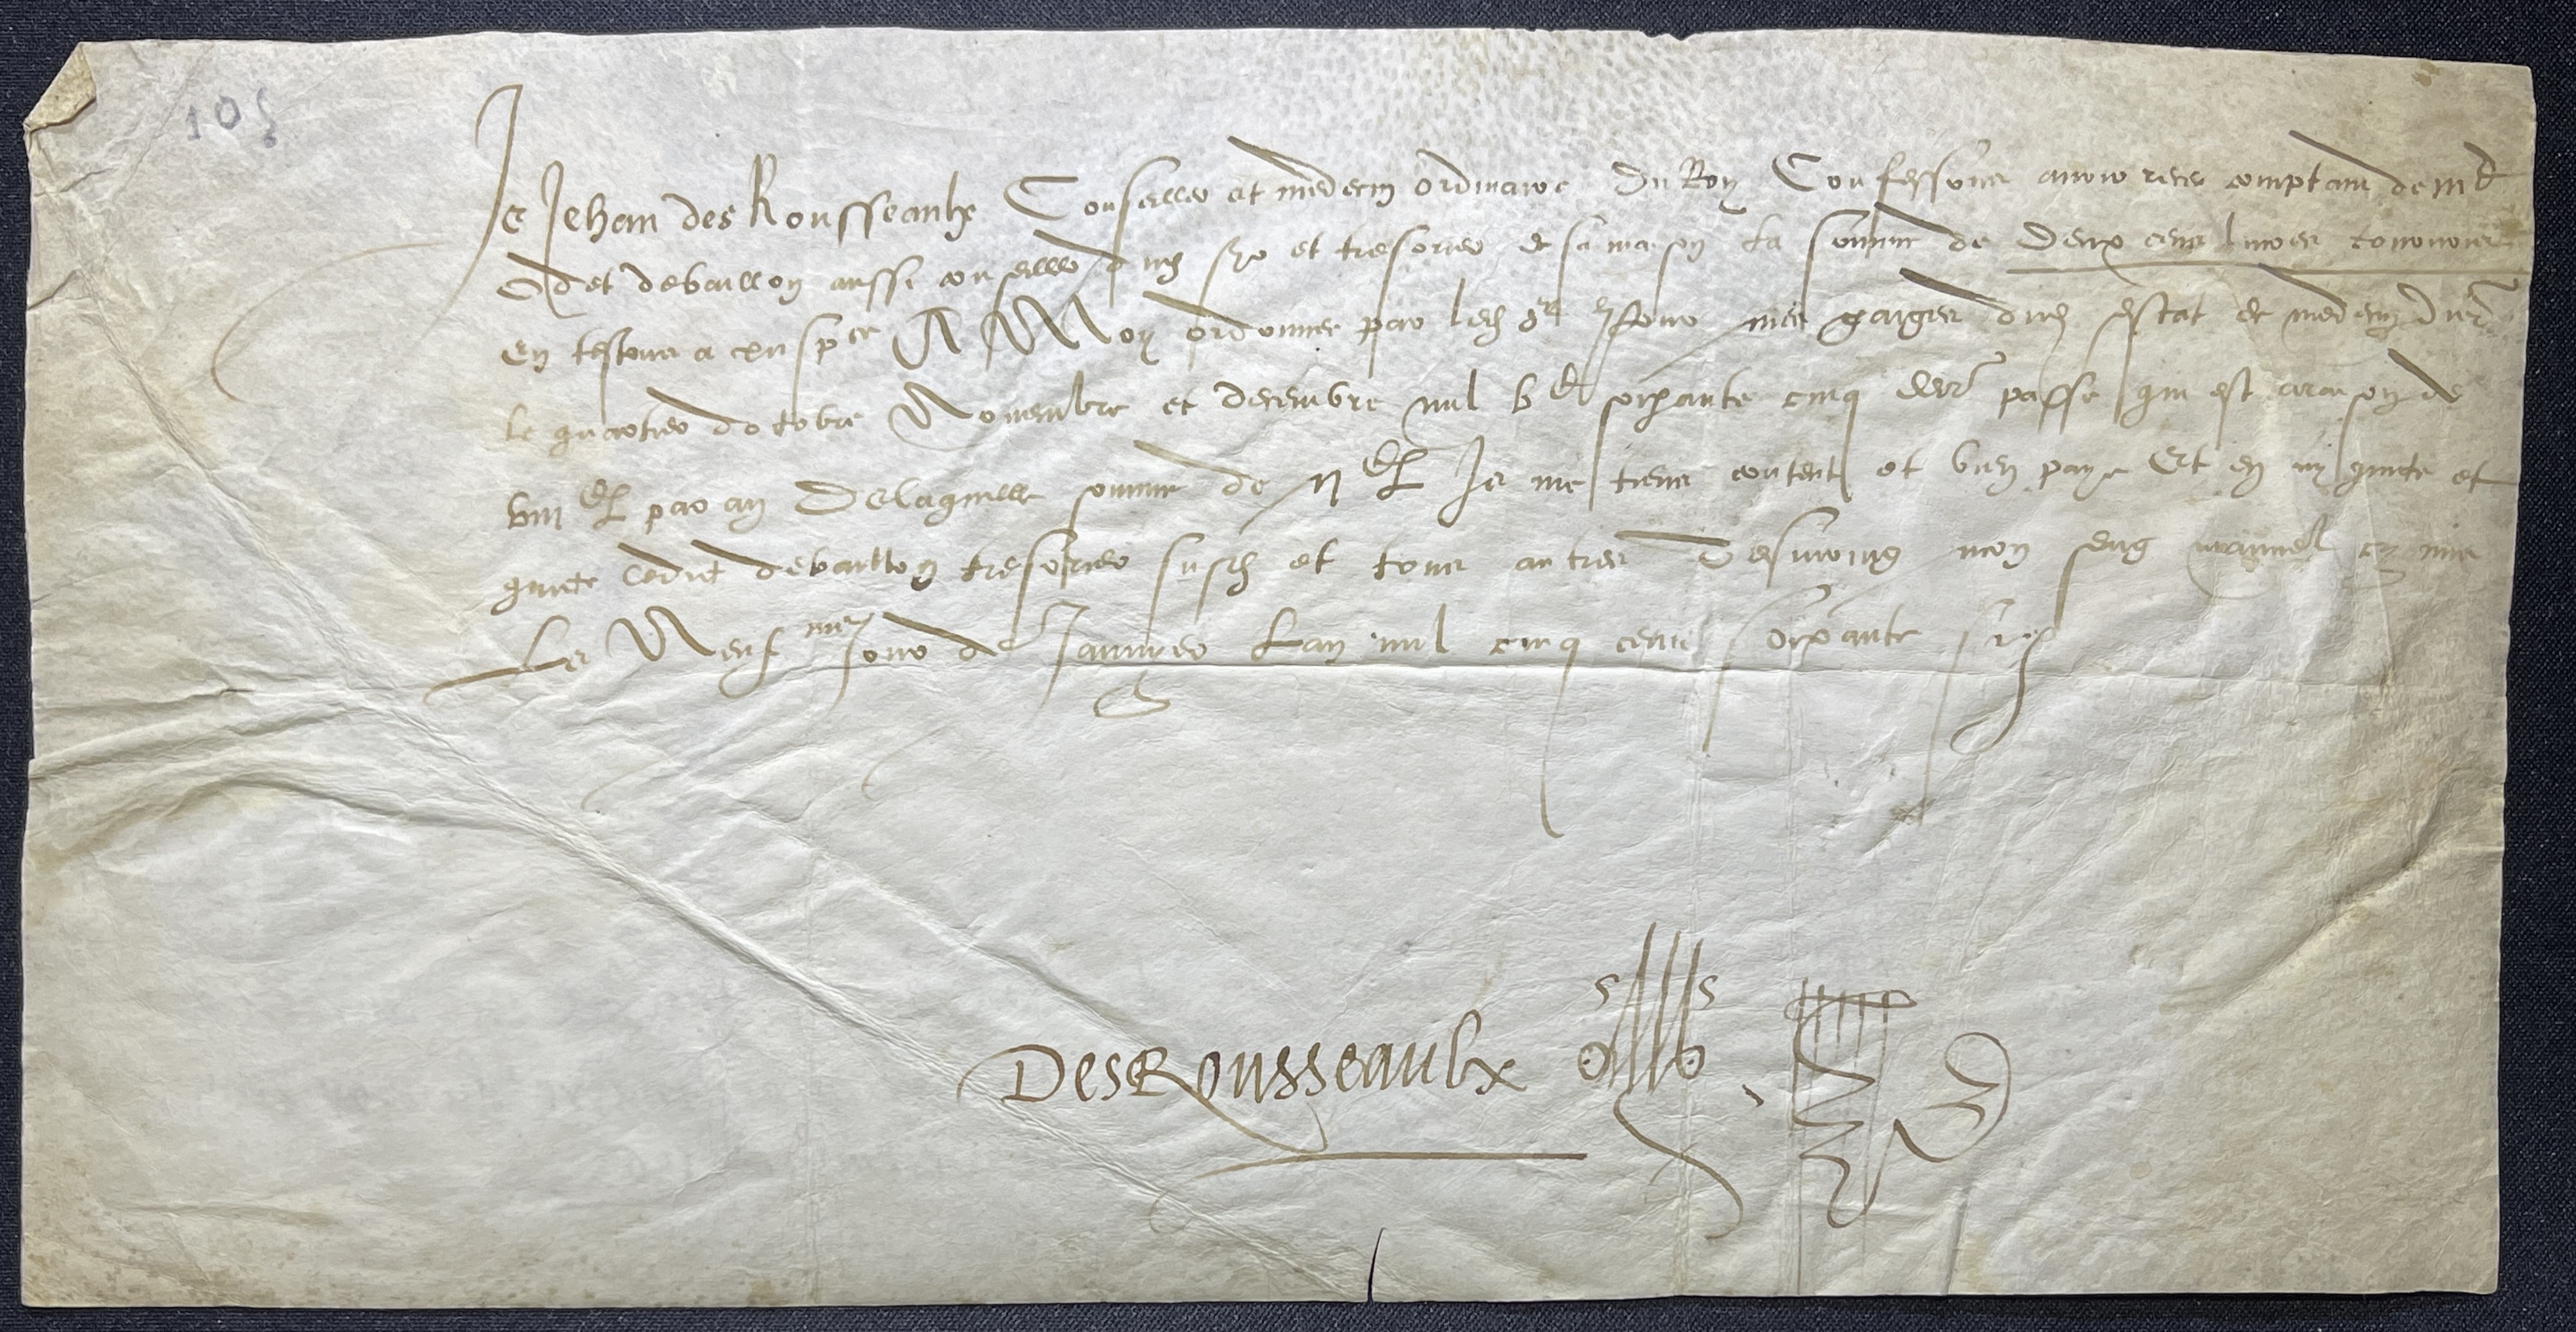 105
Je Jehan des Rousseaulx Conseiller et medecin ordinaire Du Roy Confesse avoir receu comptant de Me
Odet de baillon aussi conseiller dud sgr et tresorier de sa maison La somme de Deux cens livres tournois
En testons a xiis pce A Moy ordonnee par led sr pour mes gaiges dud estat de medecin Du
le quartier doctobre Novembre et decembre mil vc soixante cinq derr passe qui est a raison de
viiic L par an De laquelle somme de iic L Je me tiens content et bien paye Et en ay quicte et
quicte Ledict de baillon tresorier susd et tous autres Tesmoing mon seing manuel cy mis
Le Neufme jour de Janvier Lan mil cinq cens soixante six
DesRousseaulx